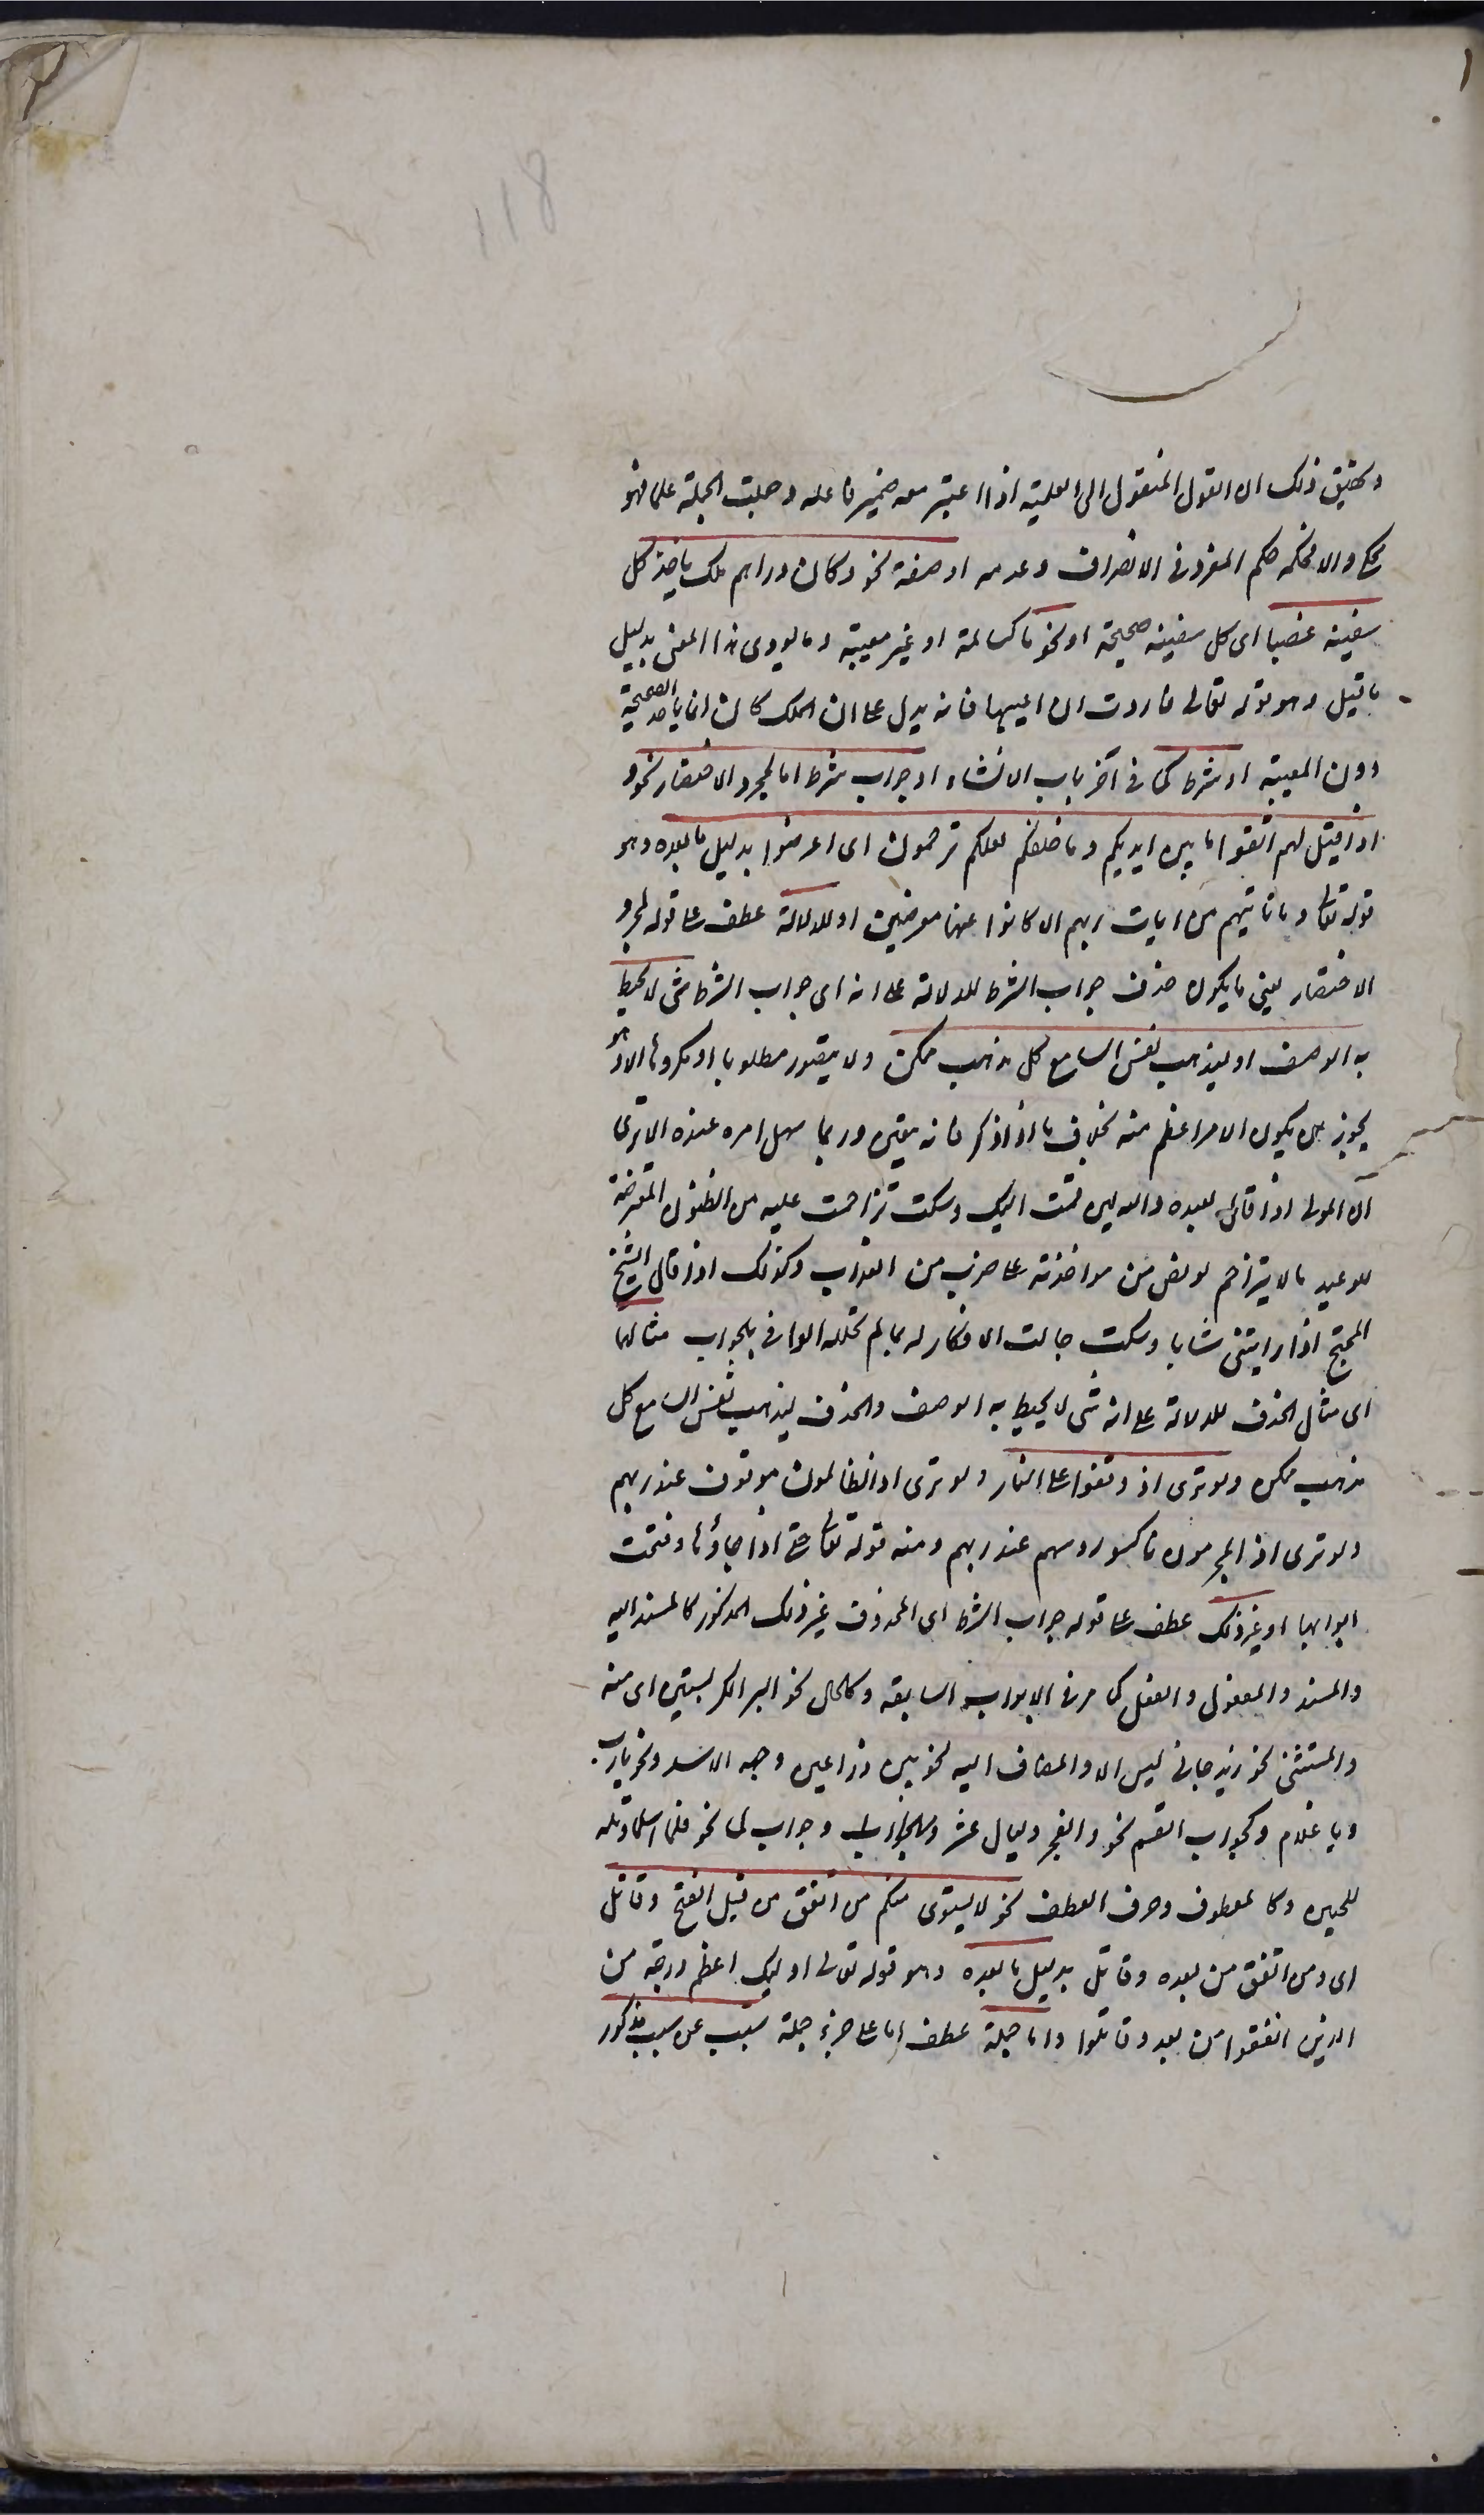 118
وتحقيق ذلك ان القول المنقول الى العلمية اذا اعتبر معه ضمير فاعله وجعلت الجملة علما فهو
محكى والا فحكمه حكم المفرد فى الانصراف وعدمه او صفة نحو وكان وراءهم ملك ياخذ كل
سفينة غصبا اى كل سفينة صحيحة او نحوها كسالمة او غير معيبة وما يودى هذا المعنى بدليل
ما قبل وهو قوله تعالى فاردت ان اعيبها فانه يدل على ان الملك كان انما ياخذ الصحيحة
دون المعيبة او شرط كما فى آخر باب الانشاء او جواب شرط اما لمجرد الاختصار نحو و
اذا قيل لهم اتقوا ما بين ايديكم وما خلفكم لعلكم ترحمون اى اعرضوا بدليل ما بعده وهو
قوله تعالى وما تاتيهم من ايات ربهم الا كانوا عنها معرضين او للدلالة عطف على قوله لمجرد
الاختصار يعنى ما يكون حذف جواب الشرط للدلالة على انه اى جواب الشرط شى لا يحيط
به الوصف او ليذهب نفس السامع كل مذهب ممكن ولا يتصور مطلوبا او مكروها الا وهو
يجوز ان يكون الامر اعظم منه بخلاف ما اذا ذكر فانه يتعين وربما سهل امره عنده الا ترى
ان المولى اذا قال لعبده والله لين قمت اليك وسكت تزاحمت عليه من الظنون المعترضة
للوعيد ما لا يتزاحم لو نص من مواخذته على ضرب من العذاب وكذلك اذا قال الشيخ
المتبجح اذا رايتنى شابا وسكت جالت الافكار له بما لم تجلله الوافى بالجواب مثالهما
اى مثال الحذف للدلالة على انه شى لا يحيط به الوصف والحذف ليذهب نفس السامع كل
مذهب ممكن ولو ترى اذ وقفوا على النار ولو ترى اذ الظالمون موقوفون عند ربهم
ولو ترى اذ المجرمون ناكسوا روسهم عند ربهم ومنه قوله تعالى حتى اذا جاؤها وفتحت
ابوابها او غير ذلك عطف على قوله جواب الشرط اى المحذوف غير ذلك المذكور كالمسند اليه
والمسند والمفعول والفعل كما مر فى الابواب السابقة وكالحال نحو البر الكر بستين اى منه
والمستثنى نحو زيد جانى ليس الا والمضاف اليه نحو بين ذراعى وجبهة الاسد ونحو يا رب
ويا غلام وكجواب القسم نحو والفجر وليال عشر وجواب لما نحو فلما اسلما وتله
للجبين وكالمعطوف وحرف العطف نحو لا يستوى منكم من انفق من قبل الفتح وقاتل
اى ومن انفق من بعده وقاتل بدليل ما بعده وهو قوله تعالى اوليك اعظم درجة من
الذين انفقوا من بعد وقاتلوا واما جملة عطف اما على جزء جملة مسبب عن سبب مذكور